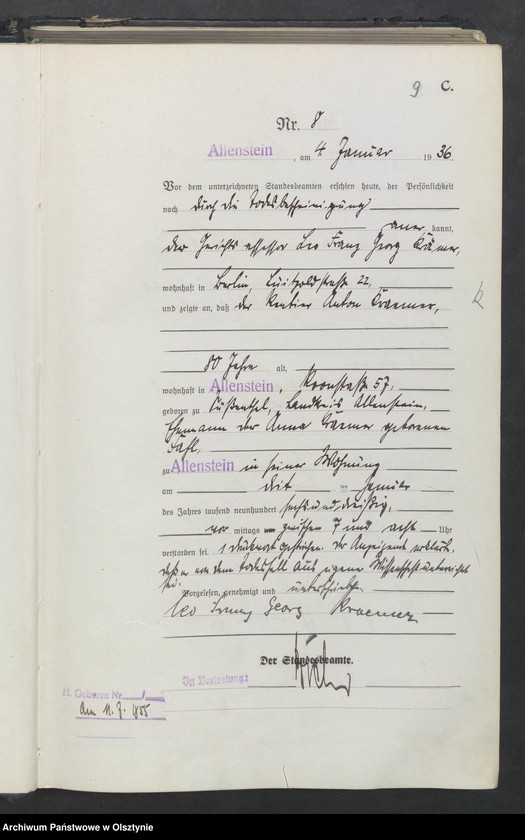 9 C.
Nr. 8
Allenstein, am 4. Januar 1936.
Vor dem unterzeichneten Standesbeamten erschien heute, der Persönlichkeit
nach durch die Todesbescheinigung
aner kannt,
der Gerichtsassessor Leo Franz Georg Krämer,
wohnhaft in Berlin, Luitpoldstraße 22,
und zeigte an, daß der Rentier Anton Kraemer,
k
80 Jahre alt,
wohnhaft in Allenstein, Roonstraße 57,
geboren zu Süßenthal, Landkreis Allenstein,
Ehemann der Anna Kraemer geborenen
zu Allenstein in seiner Wohnung
am drit ten Januar
des Jahres tausend neunhundert sechsunddreißig,
vor mittags zwischen 7 und acht Uhr
verstorben sei. 1 Druckwort gestrichen. Der Anzeigende erklärte,
daß er von dem Todesfall aus eigener Wissenschaft unterrichtet
sei.
Vorgelesen, genehmigt und unterschrieben.
Leo Franz Georg Kraemer
Der Standesbeamte.
In Vertretung:
H. Geboren Nr. 1
Am 11. 7. 1855
Archiwum Państwowe w Olsztynie